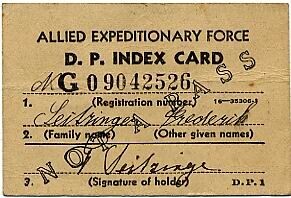 ALLIED EXPEDITIONARY FORCE
D. P. INDEX CARD
M G 09042526
1. (Registration number) 16—35306-1
Seitzinger Frederik
2. (Family name) (Other given names)
NOT A PASS
F Seitzinge
3. (Signature of holder) D.P.1